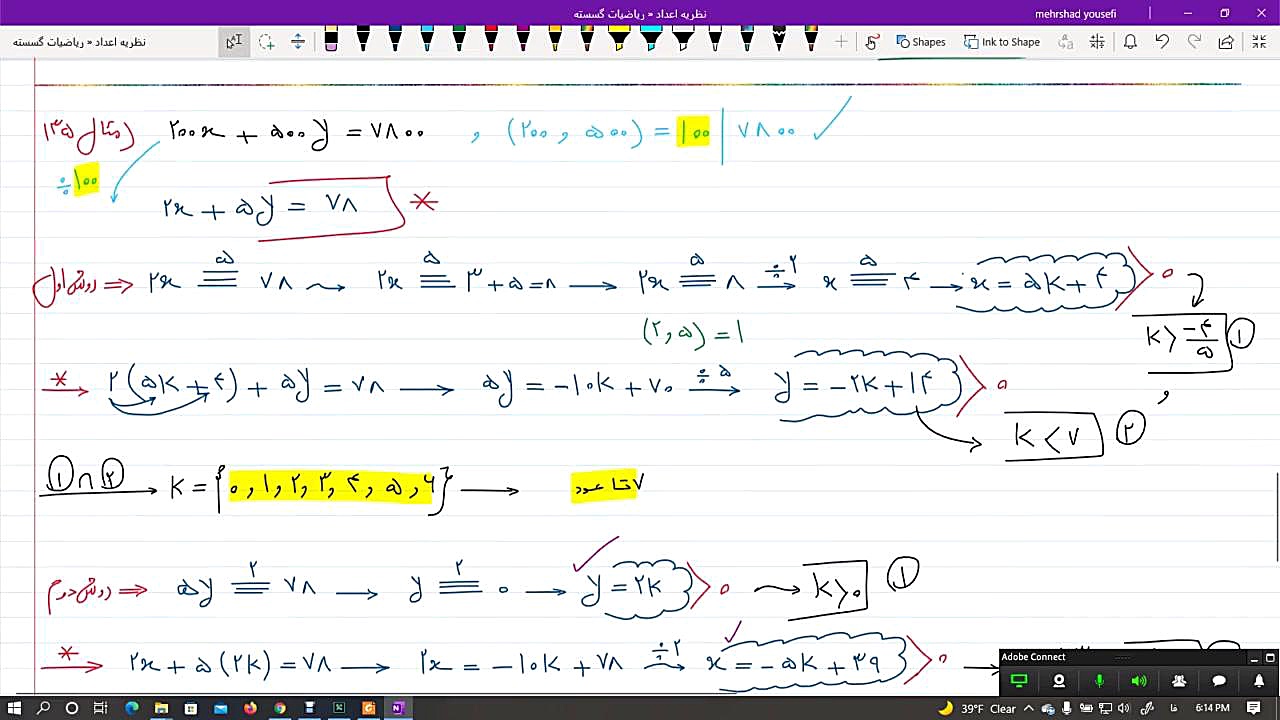 نظریه اعداد » ریاضیات گسسته
mehrshad yousefi
نظریه اعداد » ریاضیات گسسته
Shapes
Ink to Shape
مثال ۱۳۵) ۲۰۰x + ۵۰۰y = ۷۸۰۰ , (۲۰۰, ۵۰۰) = ۱۰۰ | ۷۸۰۰ ✓
÷۱۰۰
۲x + ۵y = ۷۸ *
روش اول ⇒ ۲x ≡^۵ ۷۸ ⇝ ۲x ≡^۵ ۳+۵=۸ → ۲x ≡^۵ ۸ →^÷۲ x ≡^۵ ۴ → x = ۵k+۴ > ۰
(۲,۵) = ۱
k > -۴/۵ ①
*→ ۲(۵k+۴) + ۵y = ۷۸ → ۵y = -۱۰k + ۷۰ →^÷۵ y = -۲k+۱۴ > ۰
,
k < ۷ ②
①∩② → k = {۰, ۱, ۲, ۳, ۴, ۵, ۶} → ۷ تا عدد
روش دوم ⇒ ۵y ≡^۲ ۷۸ → y ≡^۲ ۰ → y = ۲k > ۰ ⇝ k > ۰ ①
*→ ۲x + ۵(۲k) = ۷۸ → ۲x = -۱۰k + ۷۸ →^÷۲ x = -۵k + ۳۹ > ۰ →
Adobe Connect
39°F Clear
6:14 PM